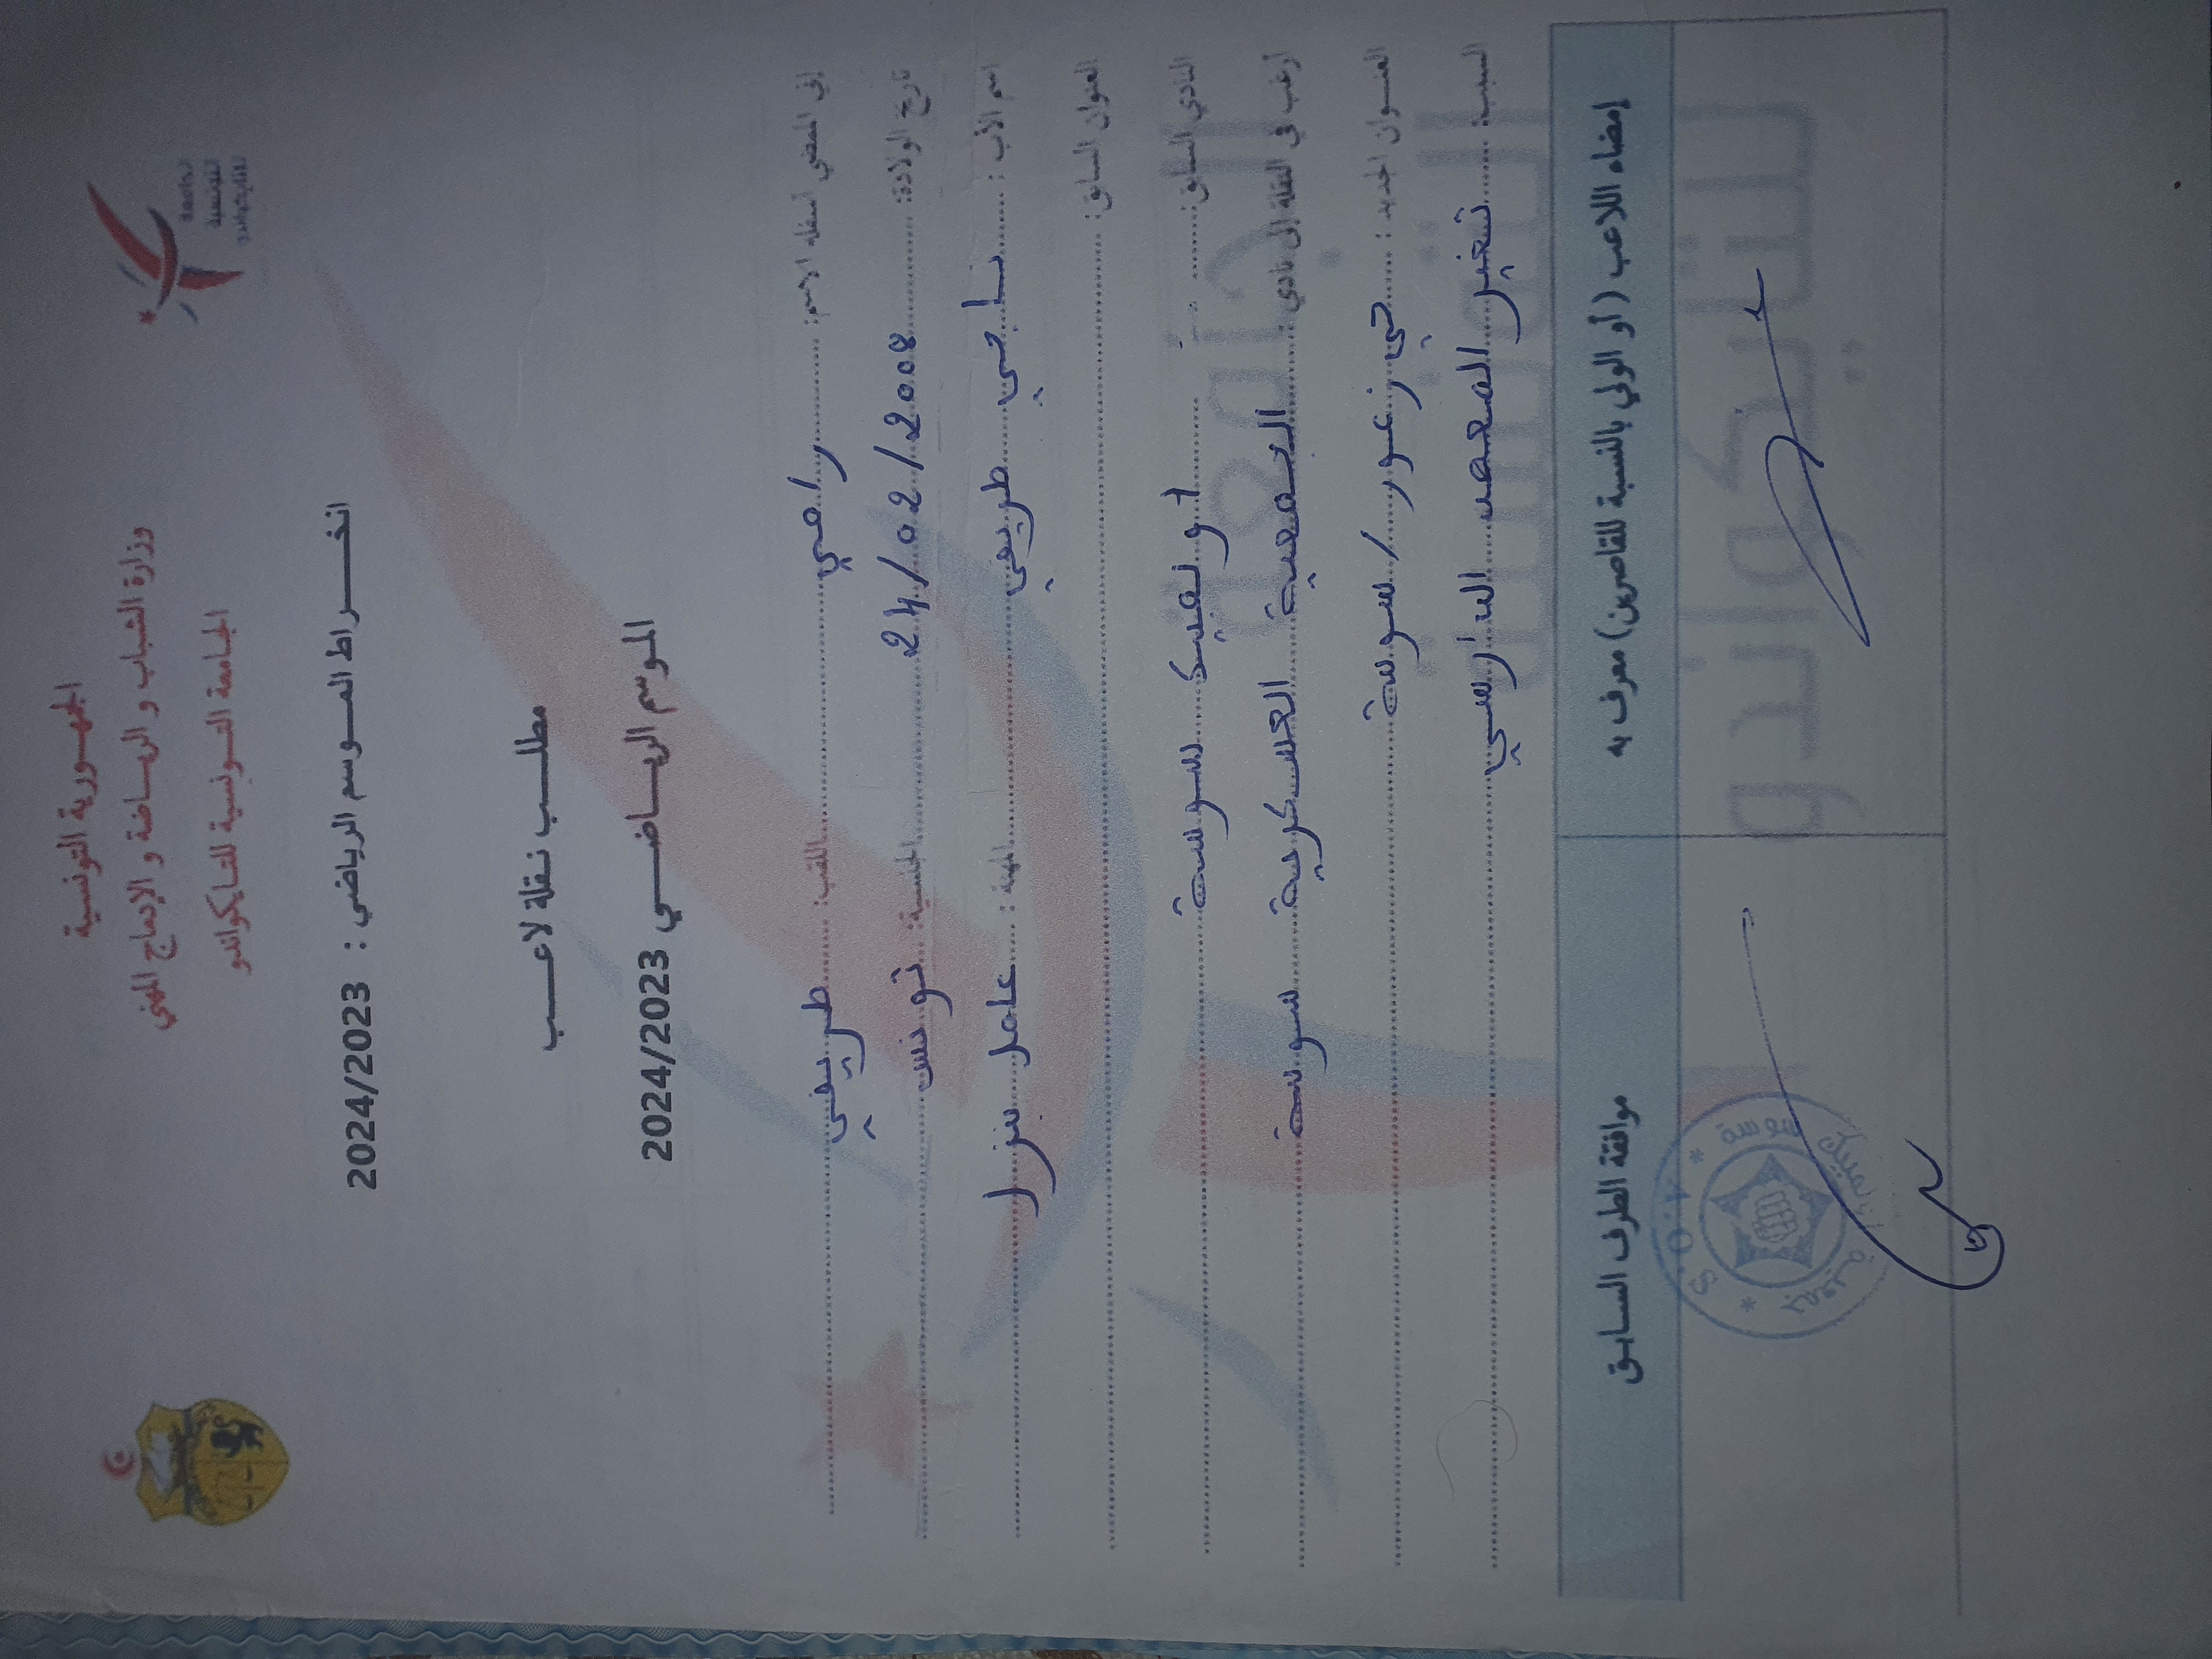 الجمهورية التونسية
وزارة الشباب و الرياضة و الإدماج المهني
الجامعة التونسية للتايكواندو
الجامعة
التونسية
للتايكواندو
انخراط الموسم الرياضي : 2024/2023
مطلب نقلة لاعب
الموسم الرياضي 2024/2023
إني الممضي أسفله الاسم: رامي اللقب: طريفي
تاريخ الولادة: 24/02/2008 الجنسية: تونس
اسم الأب : ناجي طريفي المهنة : عامل بنزا
العنوان السابق:
النادي السابق: أونفيك سوسة
أرغب في النقلة إلى نادي: الجمعية العسكرية سوسة
العنوان الجديد : حي زعرور / سوسة
السبب: تغير المعهد الدارسي
إمضاء اللاعب (أو الولي بالنسبة للقاصرين) معرف به
موافقة الطرف السابق
الجامعة
التونسية
للتايكواندو
S.O.A
جمعية سوسة